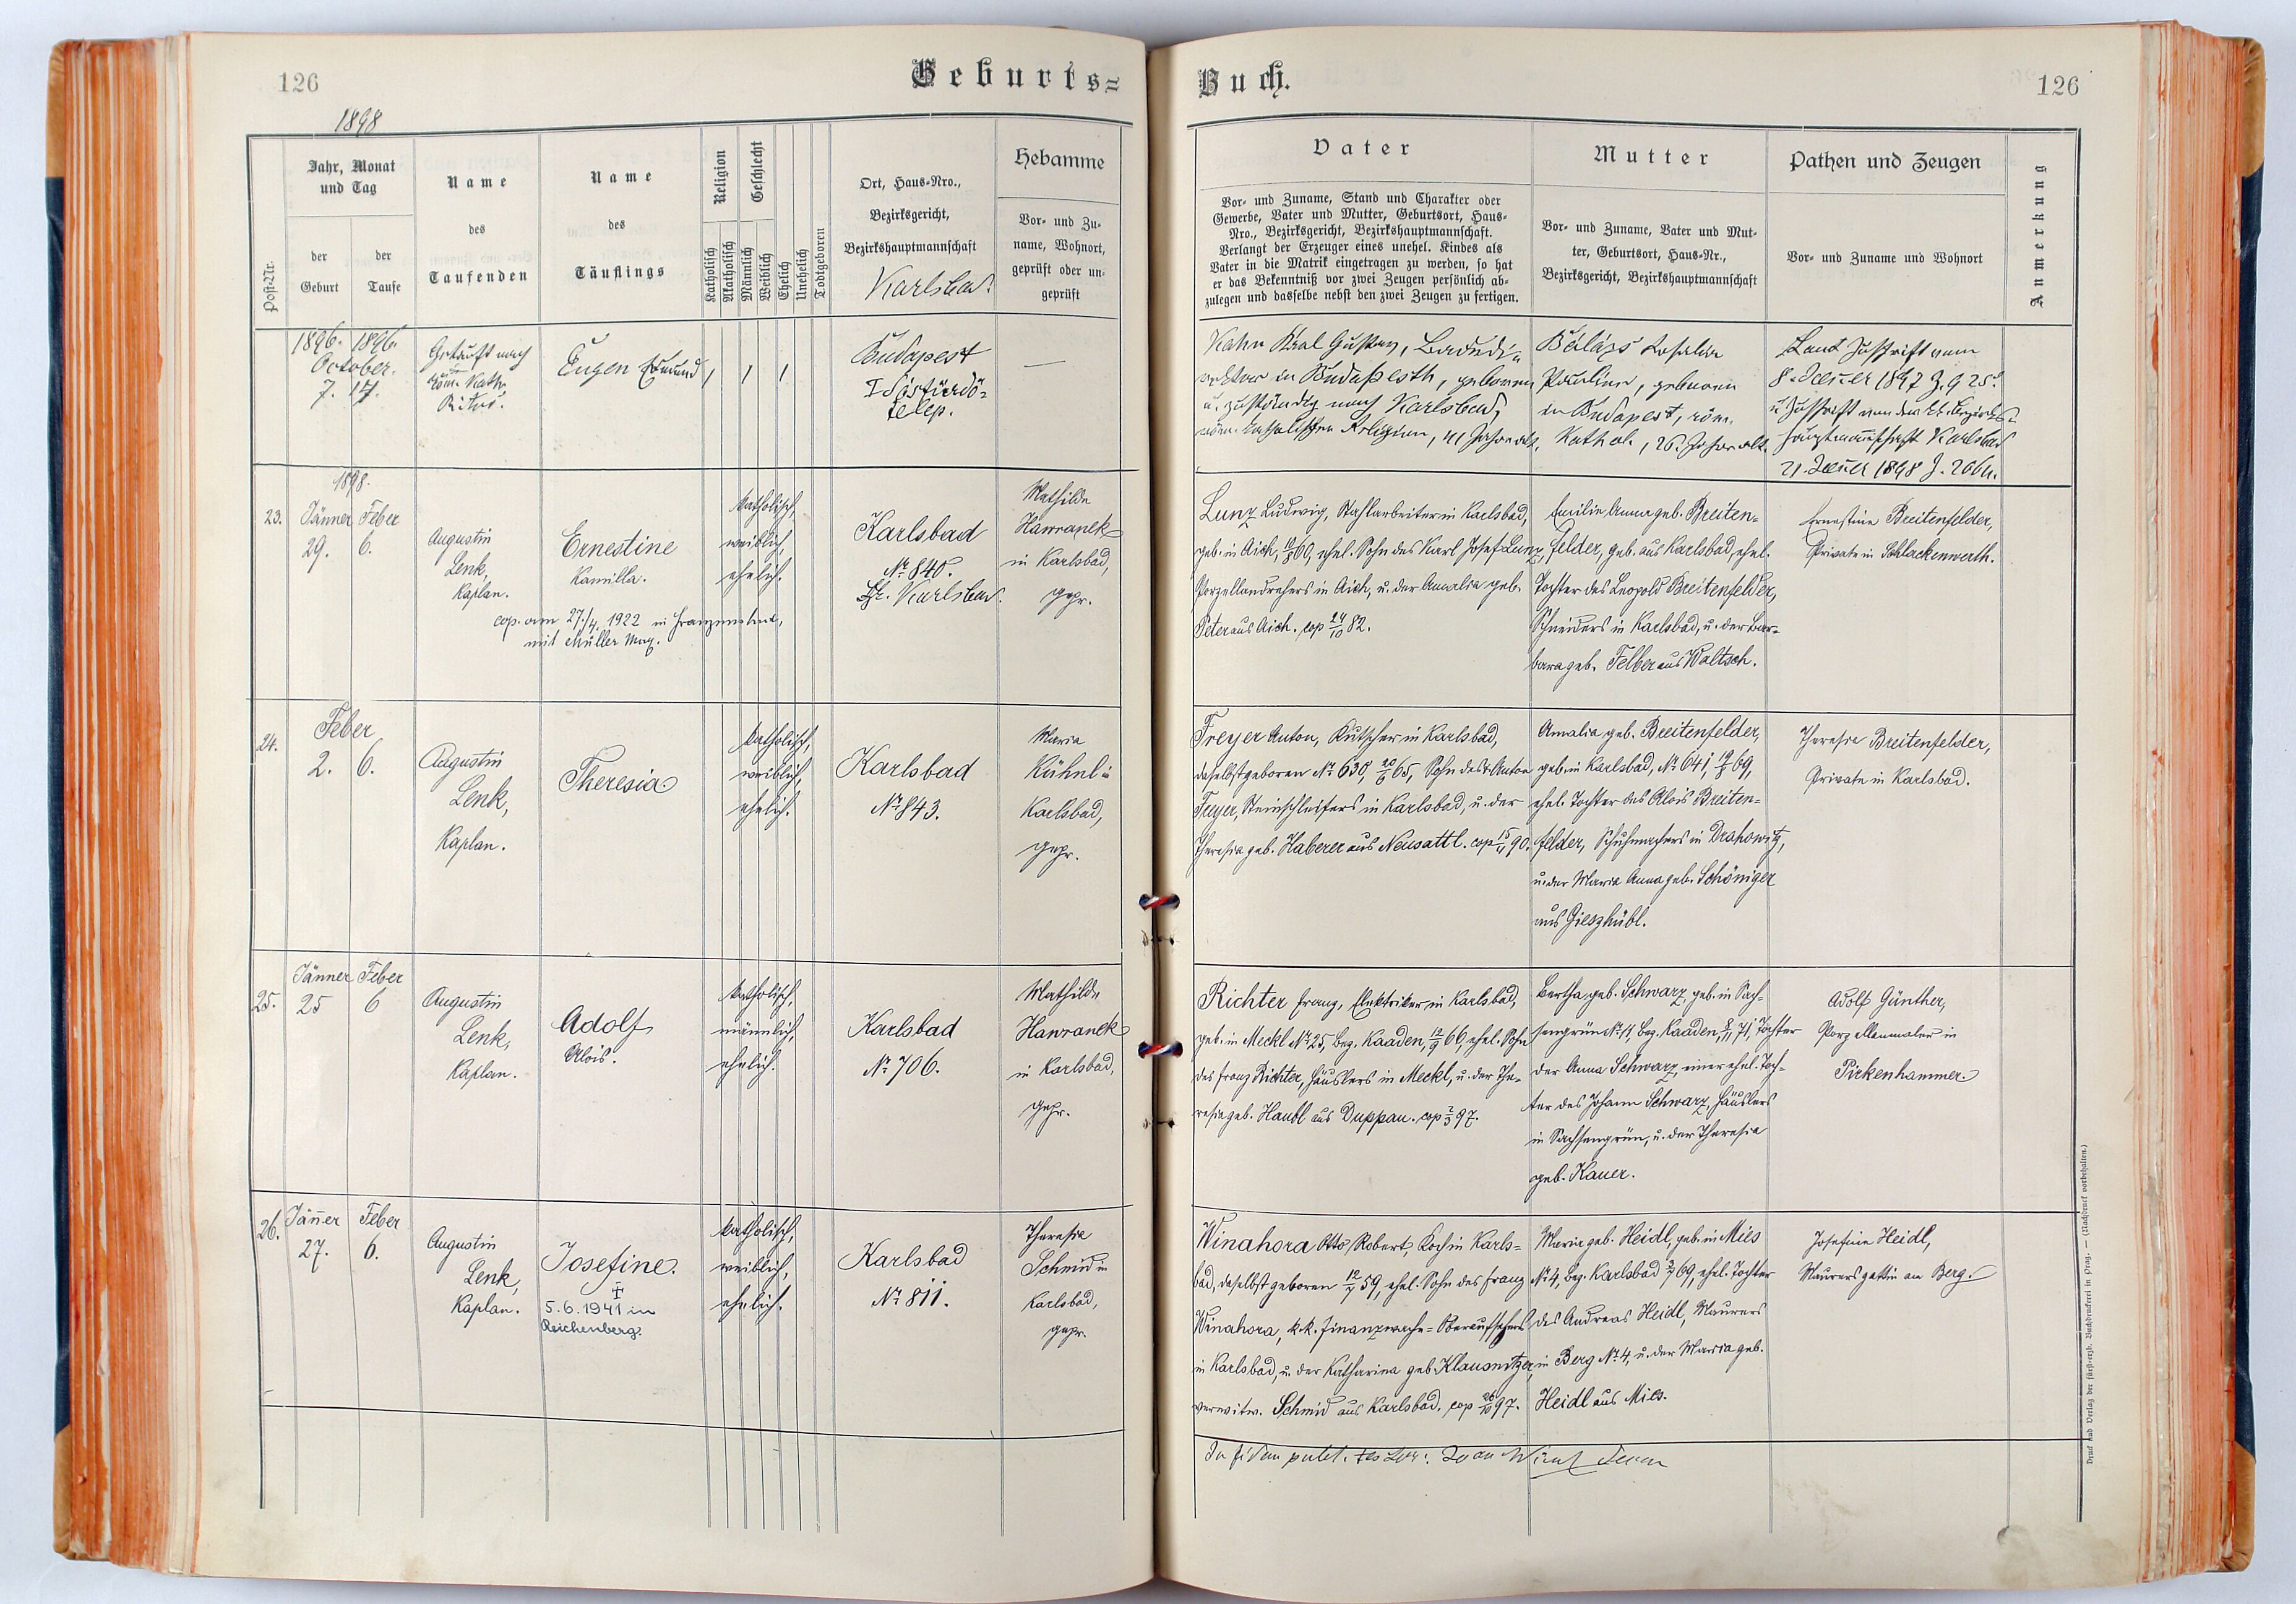 126
Geburts=
1898
Post-Nr.
Jahr, Monat
und Tag
der
Geburt
der
Taufe
Name
des
Taufenden
Name
des
Täuflings
Religion
Katholisch
Akatholisch
Geschlecht
Männlich
Weiblich
Ehelich
Unehelich
Todtgeboren
Ort, Haus-Nro.,
Bezirksgericht,
Bezirkshauptmannschaft
Karlsbad.
Hebamme
Vor- und Zu-
name, Wohnort,
geprüft oder un-
geprüft
1896. 1896.
October.
7. 17.
Getauft nach
röm. Kath.
Ritus.
Eugen Edmund
Budapest
I
telep.
1898.
23.
Jänner Feber
29. 6.
Augustin
Lenk,
Kaplan.
Ernestine
Kamilla.
cop. am 27./4. 1922 in
mit Müller Max.
katholisch,
weiblich,
ehelich.
Karlsbad
Nr. 840.
Bz. Karlsbad.
Mathilde
Hawranek
in Karlsbad,
gepr.
24.
Feber
2. 6.
Augustin
Lenk,
Kaplan.
Theresia
katholisch,
weiblich,
ehelich.
Karlsbad
Nr. 843.
Maria
Kühnl in
Karlsbad,
gepr.
25.
Jänner Feber
25 6
Augustin
Lenk,
Kaplan.
Adolf
Alois.
katholisch,
männlich,
ehelich.
Karlsbad
Nr. 706.
Mathilde
Hawranek
in Karlsbad,
gepr.
26.
Jänner Feber
27. 6.
Augustin
Lenk,
Kaplan.
Josefine.
5.6.1941 in
Reichenberg.
katholisch,
weiblich,
ehelich.
Karlsbad
Nr. 811.
Theresia
Schmid in
Karlsbad,
gepr.
Buch.
126
Vater
Vor- und Zuname, Stand und Charakter oder
Gewerbe, Vater und Mutter, Geburtsort, Haus-
Nro., Bezirksgericht, Bezirkshauptmannschaft.
Verlangt der Erzeuger eines unehel. Kindes als
Vater in die Matrik eingetragen zu werden, so hat
er das Bekenntniß vor zwei Zeugen persönlich ab-
zulegen und dasselbe nebst den zwei Zeugen zu fertigen.
Mutter
Vor- und Zuname, Vater und Mut-
ter, Geburtsort, Haus-Nr.,
Bezirksgericht, Bezirkshauptmannschaft
Pathen und Zeugen
Vor- und Zuname und Wohnort
Anmerkung
Kahn Karl Gustav,
in Budapesth, geboren
u. zuständig nach Karlsbad,
röm. katholischer Religion, 41 Jahre alt.
Balázs Rosalia
Paulina, geboren
in Budapest, röm.
Kathol., 26 Jahre alt.
Laut Zuschrift vom
8. Jänner 1897 Z. 925.
u. Zuschrift von der kk. Bezirks-
hauptmannschaft Karlsbad
21. Jänner 1898 Z. 2664.
Lunz Ludwig, Stahlarbeiter in Karlsbad,
geb. in Aich, 60, ehel. Sohn des Karl Josef Lunz,
Porzellandrehers in Aich, u. der Amalia geb.
Peter aus Aich. cop 24/10 82.
Emilie Anna geb. Breiten-
felder, geb. aus Karlsbad, ehel.
Tochter des Leopold Breitenfelder,
Schneiders in Karlsbad, u. der Bar-
bara geb. Felber aus Waltsch.
Ernestine Breitenfelder,
Private in Schlackenwerth.
Freyer Anton, Kutscher in Karlsbad,
daselbst geboren Nr. 630, 20/6 65, Sohn des Anton
Freyer, Steinschleifers in Karlsbad, u. der
Theresia geb. Haberer aus Neusattl. cop 15/11 90.
Amalia geb. Breitenfelder,
geb. in Karlsbad, Nr. 641, 69,
ehel. Tochter des Alois Breiten-
felder, Schuhmachers in Drahowitz,
u. der Maria Anna geb. Schöniger
aus Gieszhübl.
Theresia Breitenfelder,
Private in Karlsbad.
Richter Franz, Elektriker in Karlsbad,
geb. in Meckl Nr. 25, Bez. Kaaden, 12/9 66, ehel. Sohn
des Franz Richter, Häuslers in Meckl, u. der The-
resia geb. Haubl aus Duppau. cop 2/3 97.
Bertha geb. Schwarz, geb. in Sach-
sengrün Nr. 11, Bez. Kaaden, 8/11 71, Tochter
der Anna Schwarz, einer ehel. Toch-
ter des Johann Schwarz, Häuslers
in Sachsengrün, u. der Theresia
geb. Kauer.
Adolf Günther,
Porzellanmaler in
Pirkenhammer.
Winahora Otto Robert, Koch in Karls-
bad, daselbst geboren 59, ehel. Sohn des Franz
Winahora, k.k. Finanzwache-Oberaufsehers
in Karlsbad, u. der Katharina geb. Klausnitzer,
verwitw. Schmid aus Karlsbad. cop 26/10 97.
Maria geb. Heidl, geb. in Mies
Nr. 4, Bez. Karlsbad 69, ehel. Tochter
des Andreas Heidl, Maurers
in Berg Nr. 4, u. der Maria geb.
Heidl aus Mies.
Josefine Heidl,
Maurersgattin am Berg.
Druck und Verlag der fürst-erzb. Buchdruckerei in Prag. — (Nachdruck vorbehalten.)